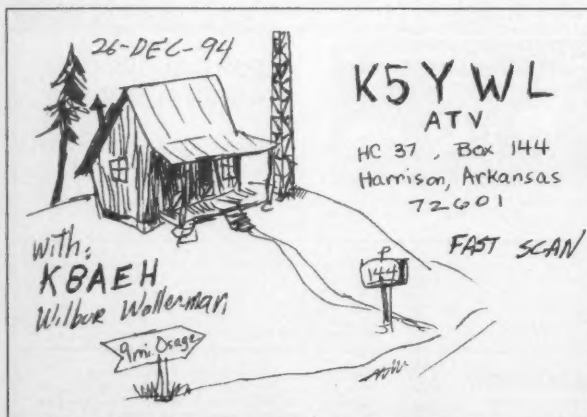 26-DEC-94
K5YWL
ATV
HC 37, Box 144
Harrison, Arkansas
72601
FAST SCAN
with:
K8AEH
Wilbur Wollerman
144
9mi. Osage